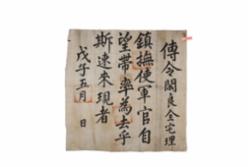 傳令閑良全宅理
鎮撫使軍官自
望帶率為去乎
斯速來現者
戊午五月 日